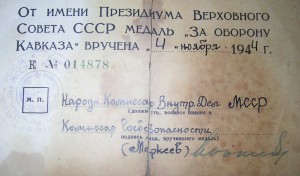 От имени Президиума Верховного
Совета СССР медаль „За оборону
Кавказа" вручена „4" ноября 1944 г.
Е № 014878.
М. П.
Народн. Комиссар Внутр. Дел МССР
(должность, воинское звание и
Комиссар Госбезопасности
подпись лица, вручившего медаль)